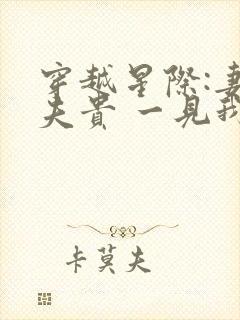 穿越星際:妻
夫貴 一見我
卡莫夫